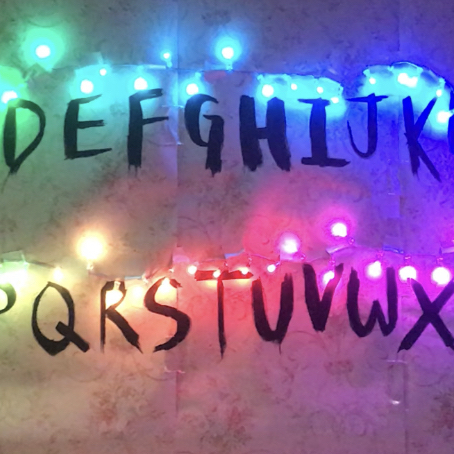 DEFGHIJK
PQRSTUVWX